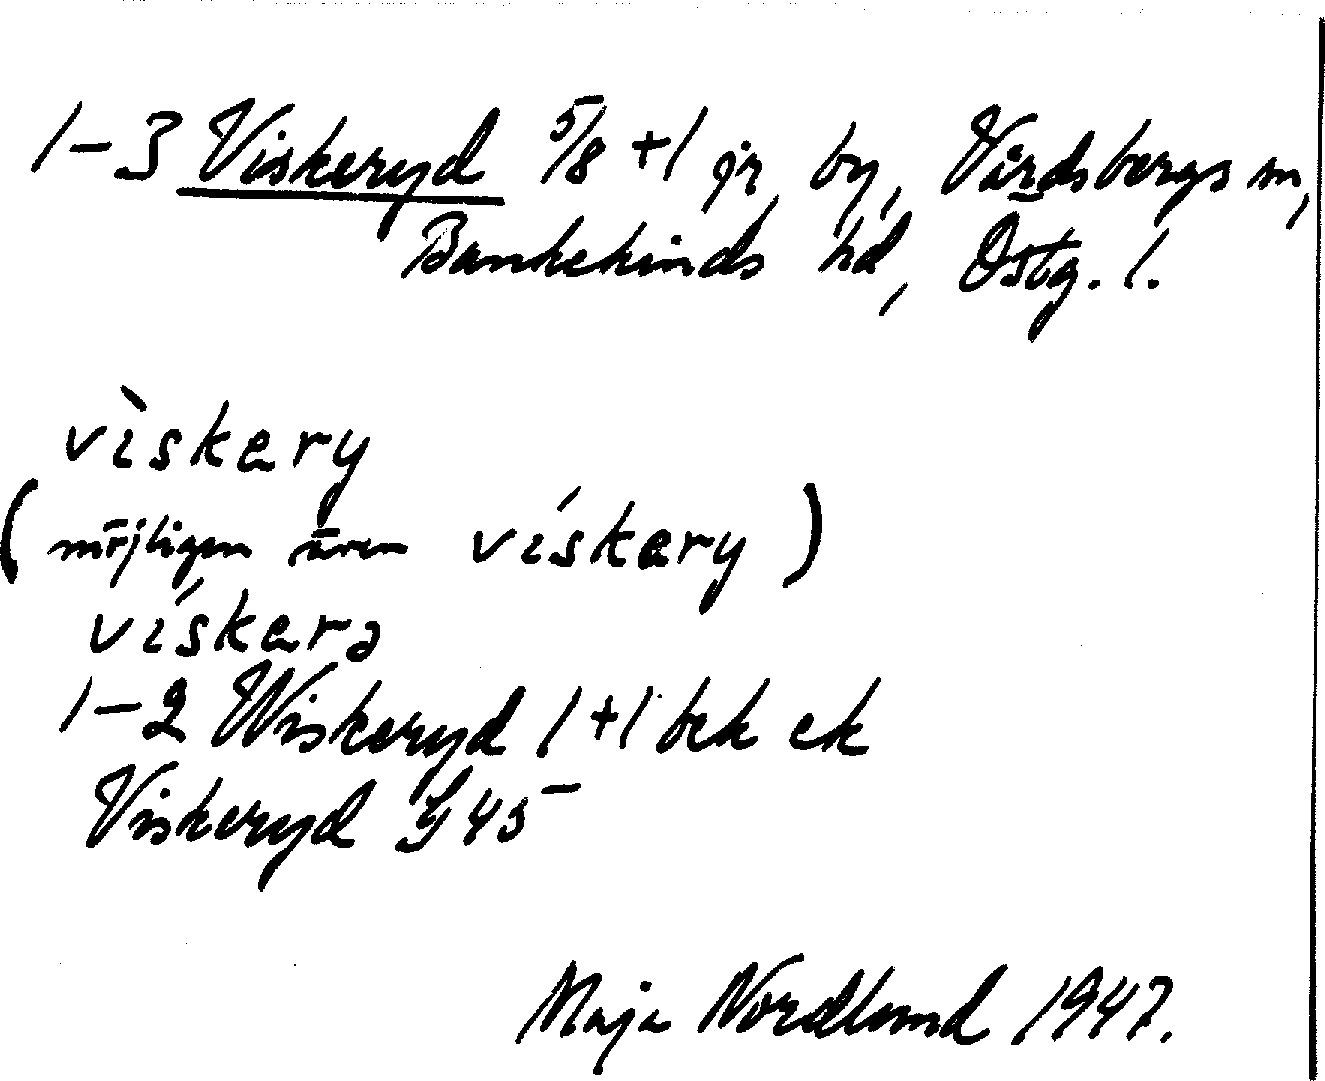 1-3 Viskeryd 5/8 +1 gr by, Vårdsbergs sn,
Bankekinds hd, Östg. l.
vìskery
(möjligen även vískery)
vískerə
1-2 Wiskeryd 1+1 bek ek
Viskeryd G45
Maja Nordlund 1947.